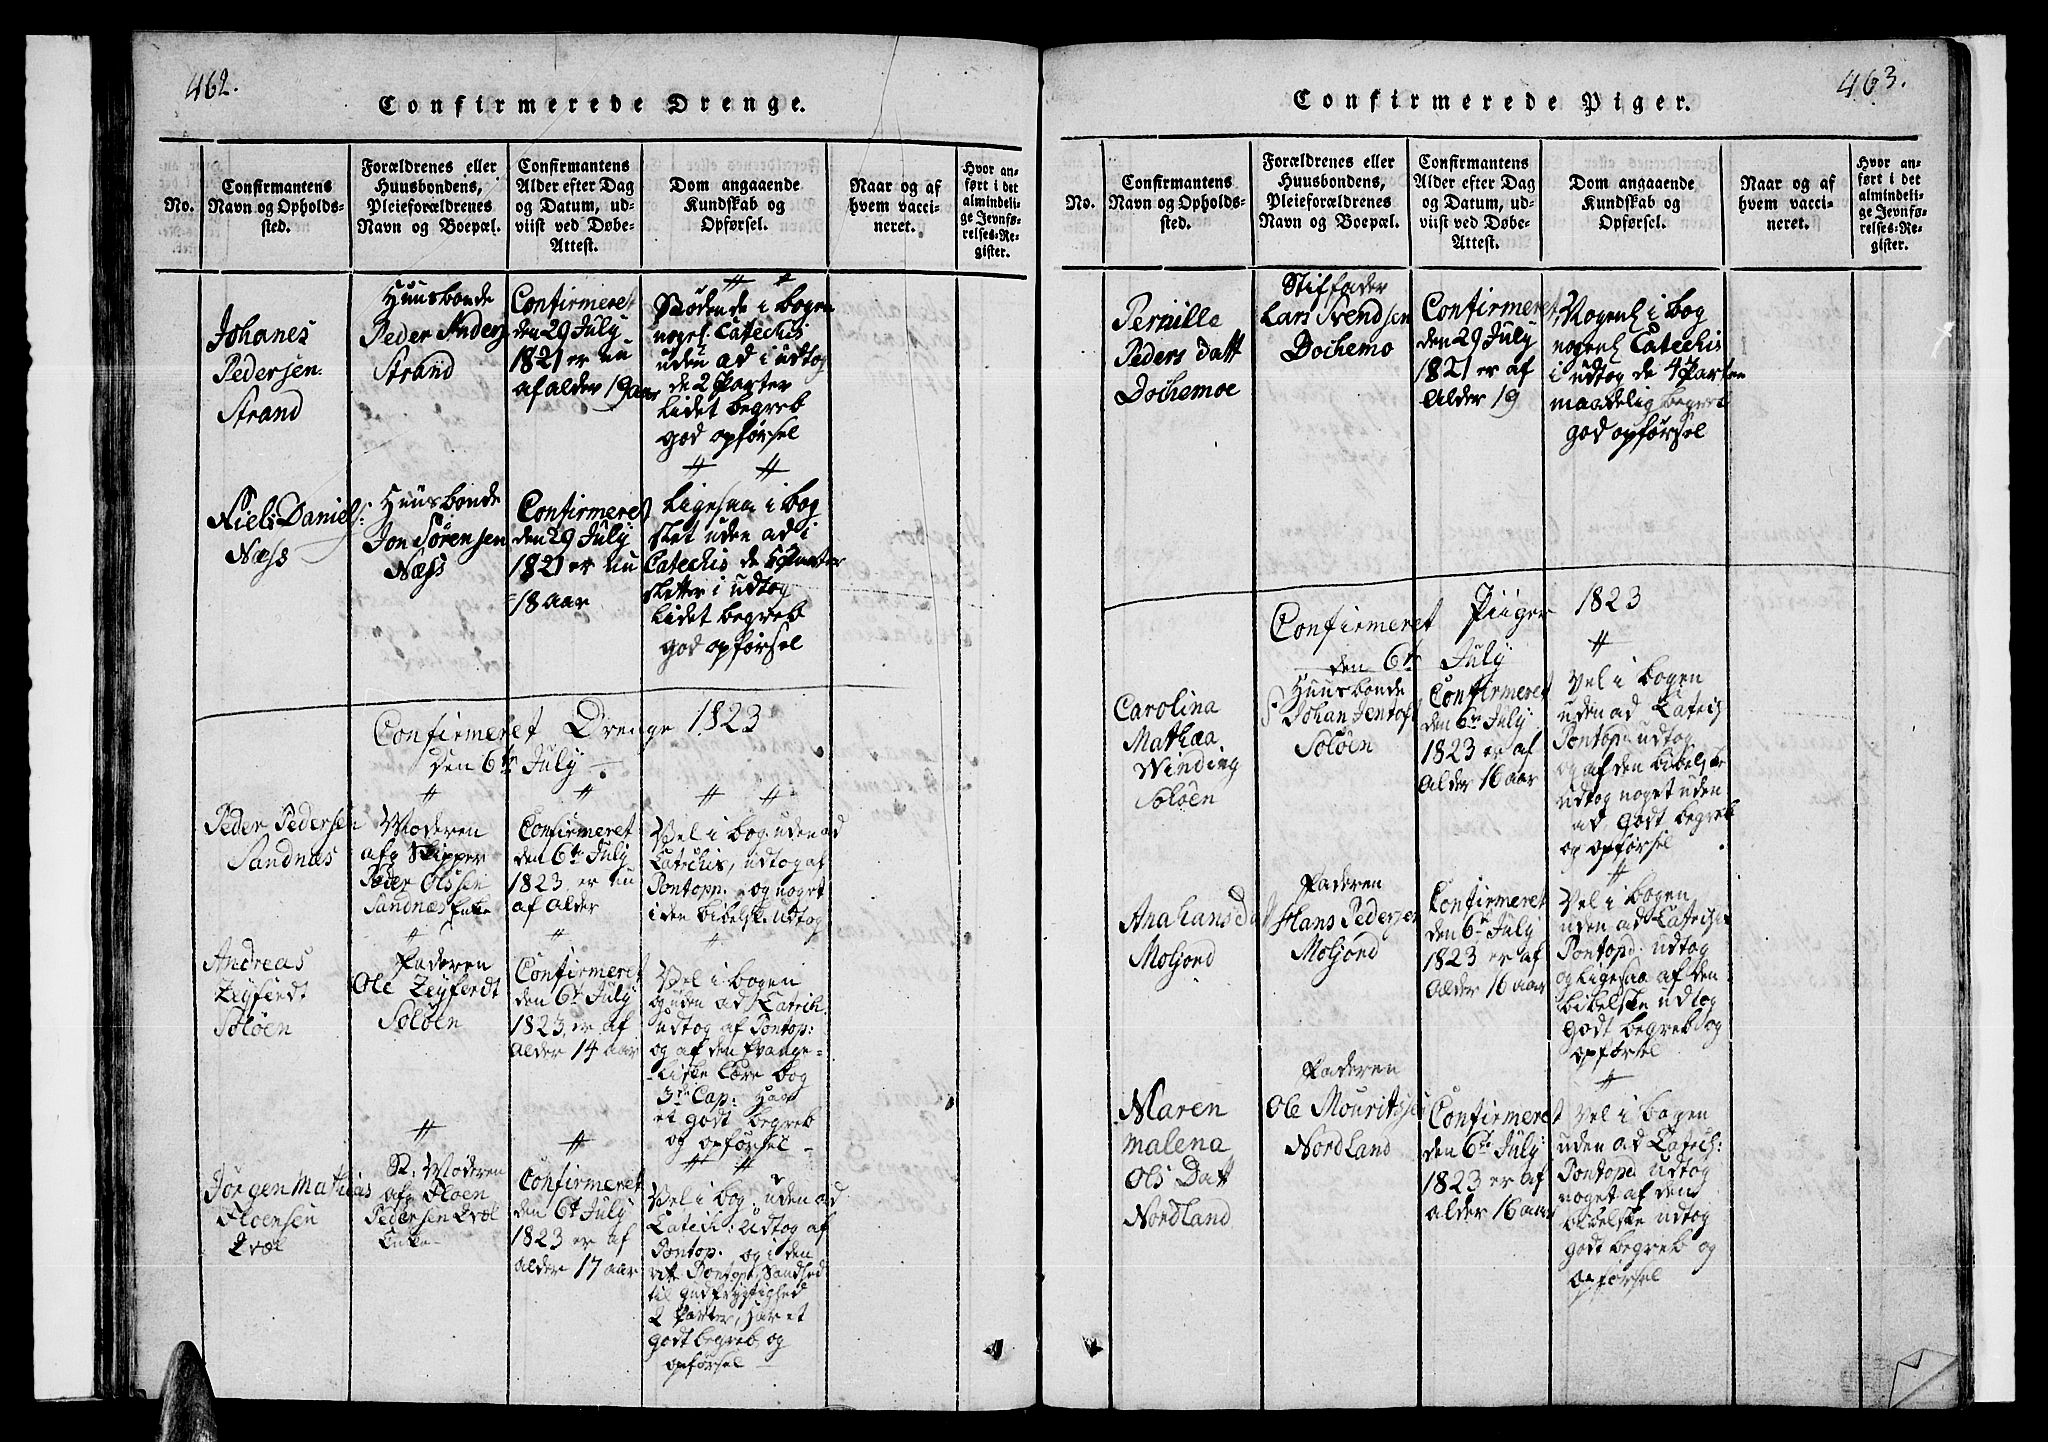 462.
Confirmerede Drenge.
No.
Confirmantens
Navn og Opholds-
sted.
Forældrenes eller
Huusbondens,
Pleieforældrenes
Navn og Boepæl.
Confirmantens
Alder efter Dag
og Datum, ud-
viist ved Døbe-
Attest.
Dom angaaende
Kundskab og
Opførsel.
Naar og af
hvem vacci-
neret.
Hvor an-
ført i det
almindeli-
ge Jevnfø-
relses-Re-
gister.
Johanes
Pedersen
Strand
Huusbonde
Peder Anders
Strand
Confirmeret
den 29 July
1821 er nu
af alder 19 aar
i bogen
noget Catechis
uden ad i udtog
de 2 Parter
Lidet begreb
god opførsel
Niels Daniels:
Næss
Huusbonde
Jon Sørensen
Næss
Confirmeret
den 29 July
1821 er nu
18 aar
Ligesaa i bog
slet uden ad i
Catechis de 5 Parter
sletter i udtog
Lidet begreb
god opførsel
Confirmeret Drenge 1823
den 6te July
Peder Pedersen
Sandnæs
Moderen
afg Skipper
Peder Olssen
Sandnæs Enke
Confirmeret
den 6te July
1823 er nu
af alder
Vel i bog uden ad
Catechis, udtog af
Pontopp. og noget
i den bibelske udtog
Andreas
Zeyferdt
Soløen
Faderen
Ole Zeyferdt
Soløen
Confirmeret
den 6te July
1823 er af
alder 14 aar
Vel i bogen
og uden ad Catech.
udtog af Pontop:
og af den Evange-
liske Lære bog
3de Cap: Har
et godt begreb
og opførsel
Jörgen Mathias
Floensen
Evæl
St: Moderen
afg Floen
Pedersen Evæl
Enke
Confirmeret
den 6te July
1823 er af
alder 17 aar
Vel i bog, uden ad
Catech: Udtog af
Pontop. og i den
Pontopt. Sandhed
til gudfrygtighed
2 Parter, Har et
godt begreb og
opførsel
463.
Confirmerede Piger.
No.
Confirmantens
Navn og Opholds-
sted.
Forældrenes eller
Huusbondens,
Pleieforældrenes
Navn og Boepæl.
Confirmantens
Alder efter Dag
og Datum, ud-
viist ved Døbe-
Attest.
Dom angaaende
Kundskab og
Opførsel.
Naar og af
hvem vacci-
neret.
Hvor an-
ført i det
almindeli-
ge Jevnfø-
relses-Re-
gister.
Pernille
Peders Datt
Dochemoe
Stiffader
Lars Svendsen
Dochemo
Confirmeret
den 29 July
1821 er af
Alder 19
i bog
Catechis
i udtog de 4 Parter
maadelig begreb
god opførsel
Confirmeret Piiger 1823
den 6te July
Carolina
Mathæa
Winding
Soløen
Huusbonde
Johan Jentoft
Soløen
Confirmeret
den 6te July
1823 er af
Alder 16 aar
Vel i bogen
uden ad Catech
Pontop: udtog
og af den bibelske
udtog noget uden
ad, godt begreb
og opførsel
Ana Hans Dat
Moljord
Faderen
Hans Pedersen
Moljord
Confirmeret
den 6te July
1823 er af
Alder 16 aar
Vel i bogen
uden ad Catechis
Pontop: udtog
og ligesaa af den
bibelske udtog
godt begreb og
opførsel
Maren
Malena
Ols Datt
Nordland
Faderen
Ole Mouritssen
Nordland
Confirmeret
den 6te July
1823 er af
Alder 16 aar
Vel i bogen
uden ad Catech:
Pontop: udtog
noget af den
bibelske udtog
godt begreb og
opførsel